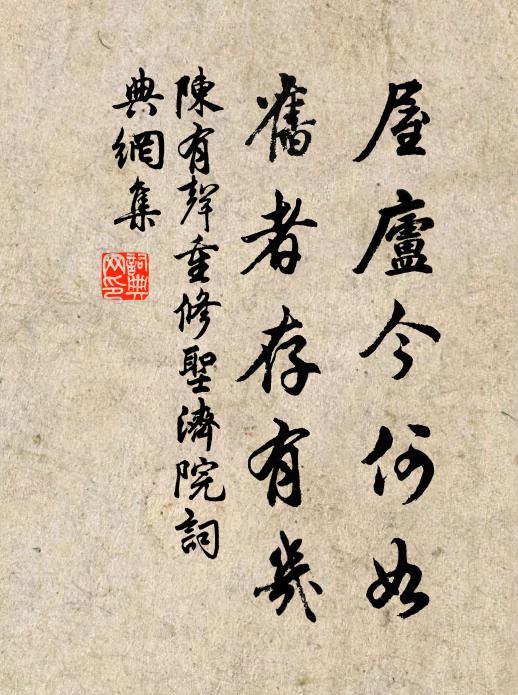 屋廬今何如
舊者存有幾
陳有聲重修聖濟院詞
典網集
詞典
网印